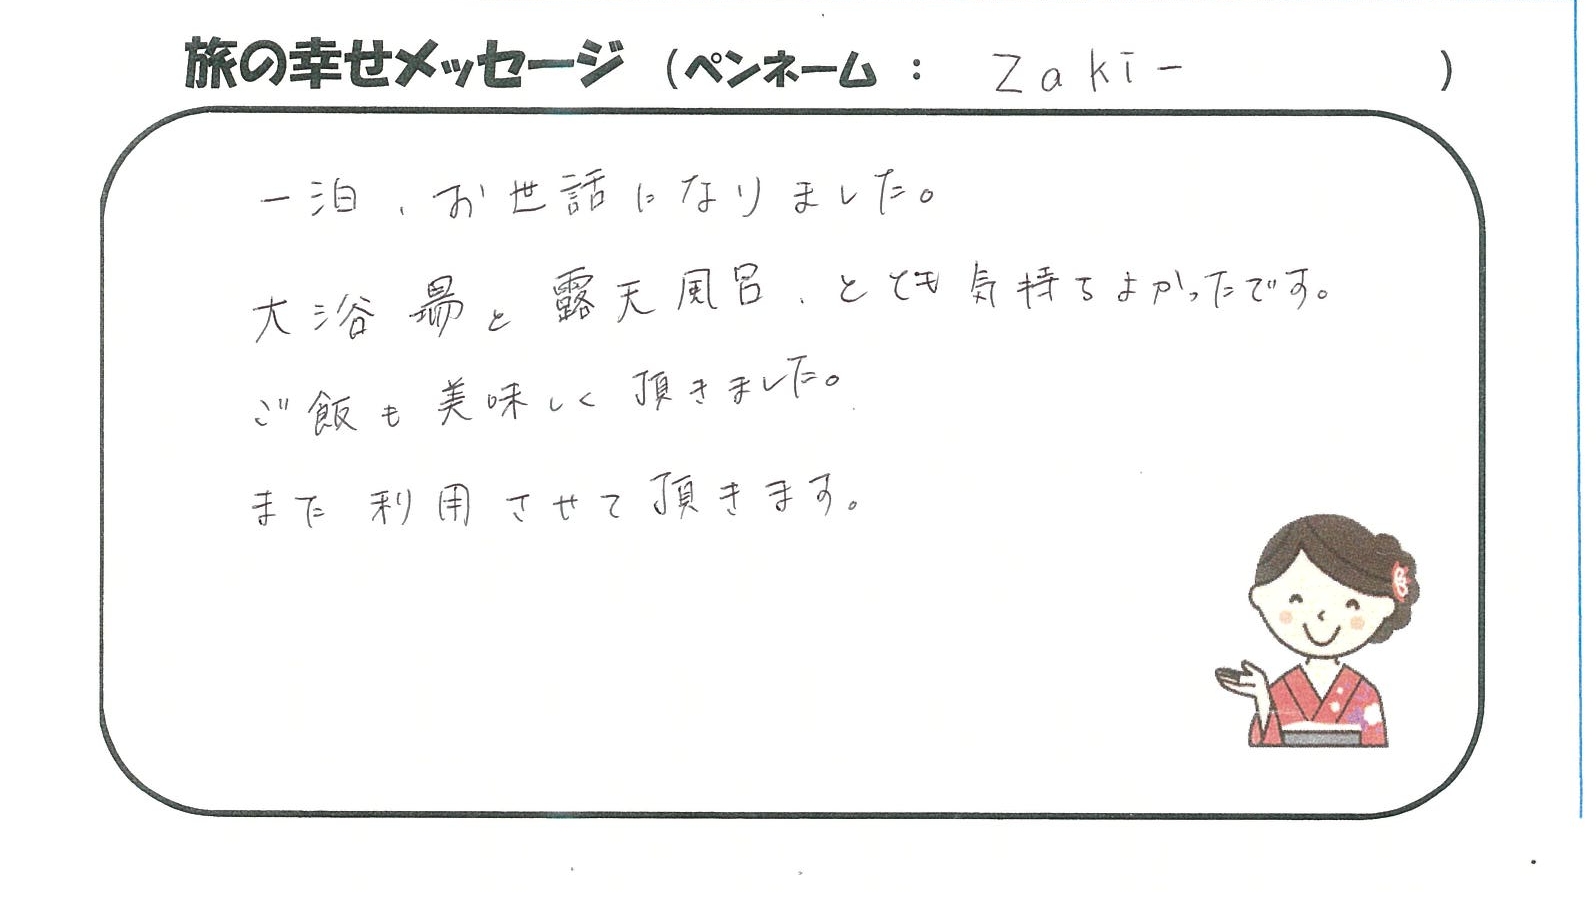 旅の幸せメッセージ（ペンネーム： Zakiー ）
一泊、お世話になりました。
大浴場と露天風呂、とても気持ちよかったです。
ご飯も美味しく頂きました。
また利用させて頂きます。